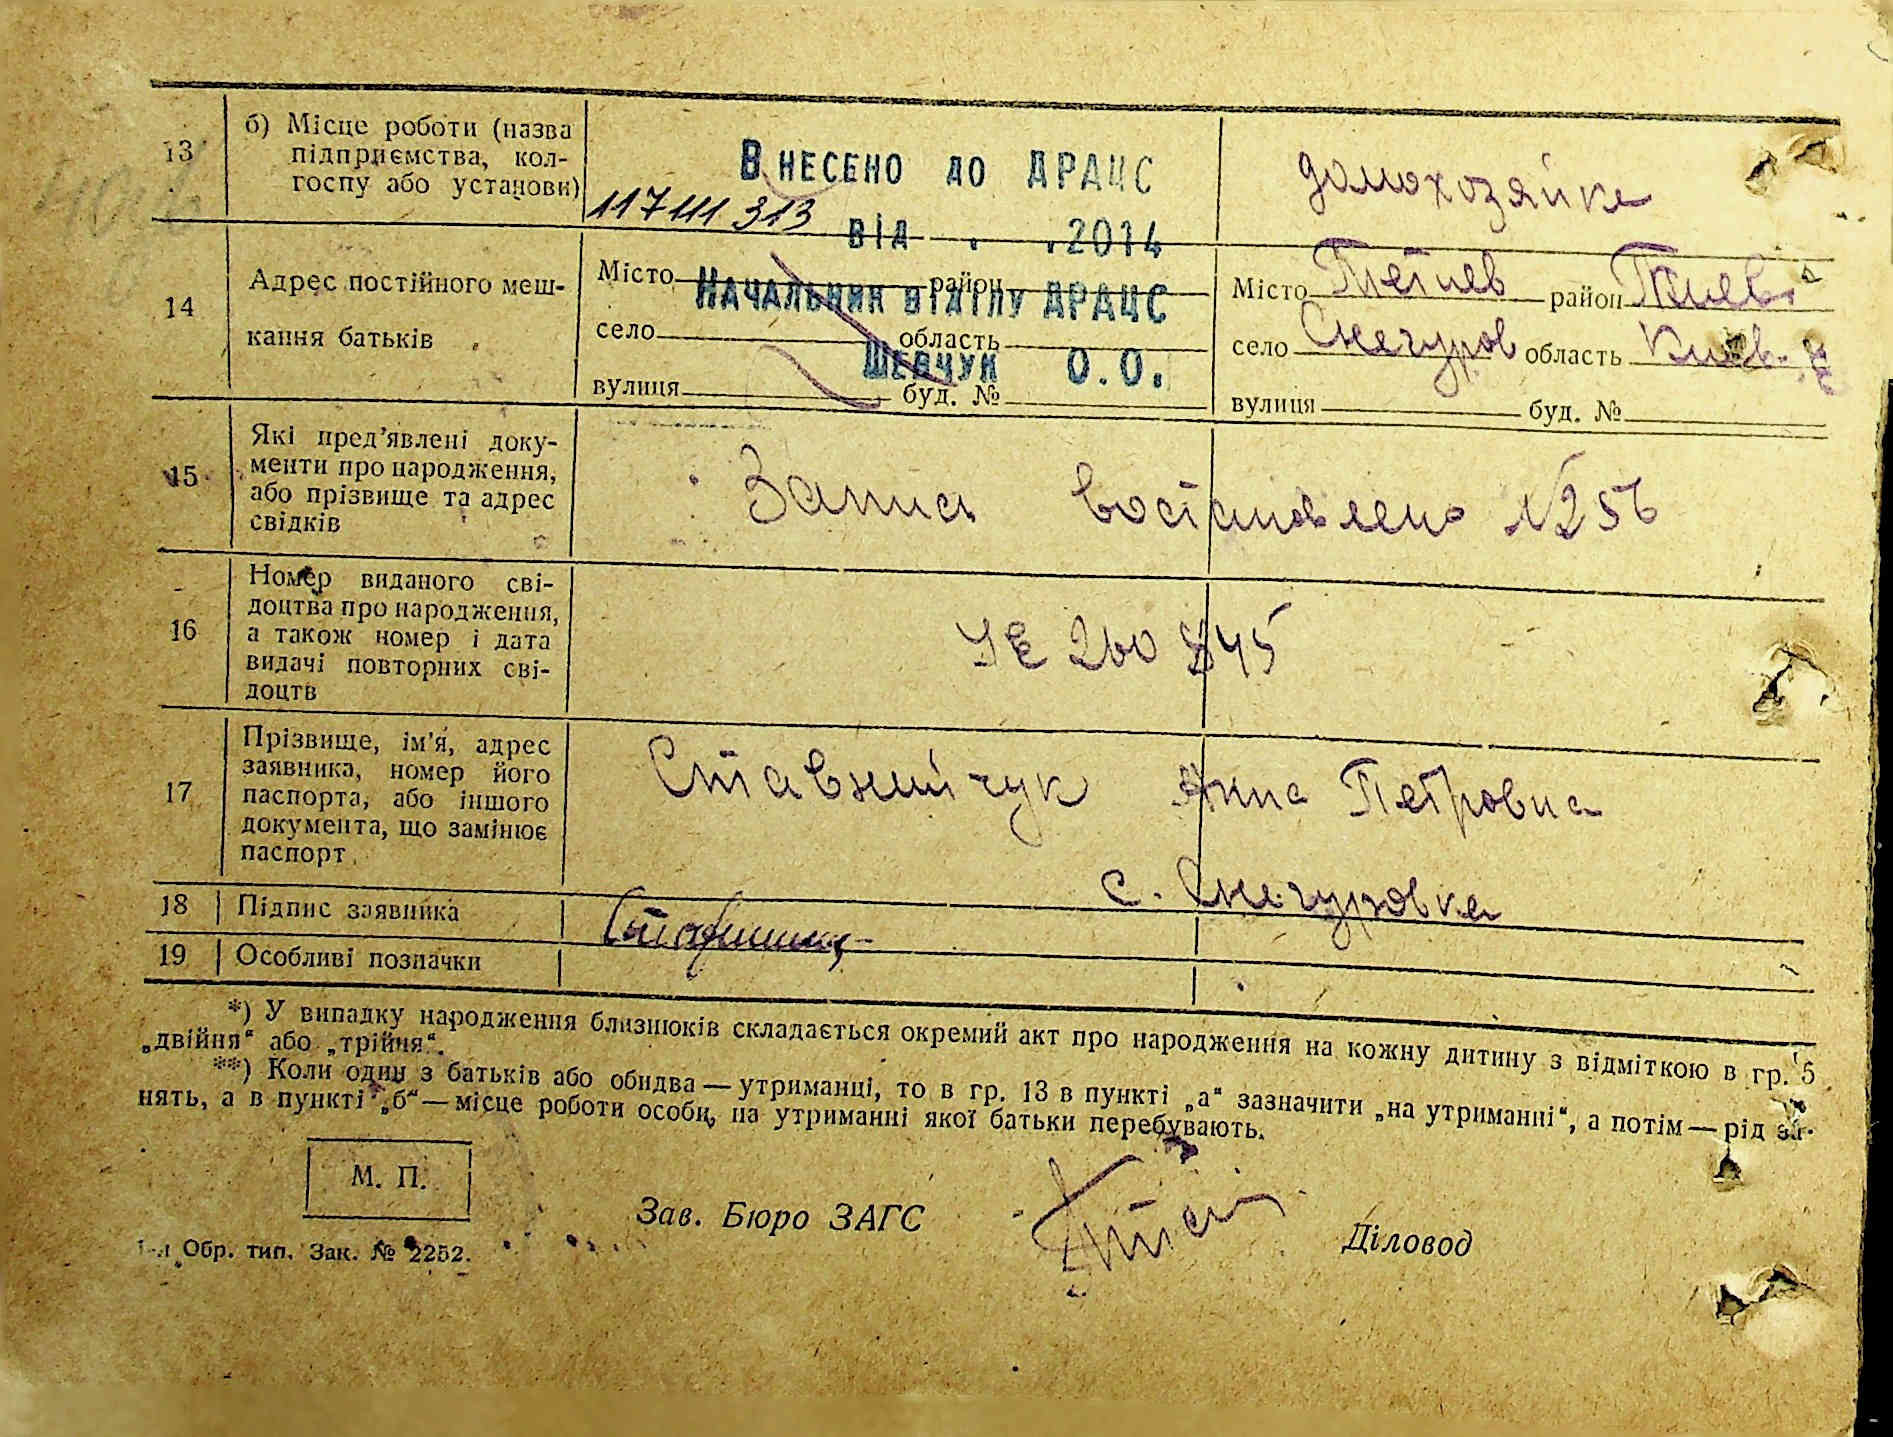 13 б) Місце роботи (назва
підприємства, кол-
госпу або установи)
Внесено до ДРАЦС
117111313
від . .2014
Начальник відділу ДРАЦС
Шевчук О.О.
домохозяйка
14 Адрес постійного меш-
кання батьків
Місто район
село область
вулиця буд. №
Місто Тетиев район
село Снегуров область Киев.
вулиця буд. №
15 Які пред'явлені доку-
менти про народження,
або прізвище та адрес
свідків
Запис востановлено №256
16 Номер виданого сві-
доцтва про народження,
а також номер і дата
видачі повторних сві-
доцтв
260 845
17 Прізвище, ім'я, адрес
заявника, номер його
паспорта, або іншого
документа, що замінює
паспорт
Ставнийчук Анна Петровна
с. Снегуровка
18 Підпис заявника
19 Особливі позначки
*) У випадку народження близнюків складається окремий акт про народження на кожну дитину з відміткою в гр. 5
„двійня“ або „трійня“.
**) Коли один з батьків або обидва — утриманці, то в гр. 13 в пункті „а“ зазначити „на утриманні“, а потім — рід за-
нять, а в пункті „б“ — місце роботи особи, на утриманні якої батьки перебувають.
М. П.
Зав. Бюро ЗАГС
Діловод
Обр. тип. Зак. № 2252.